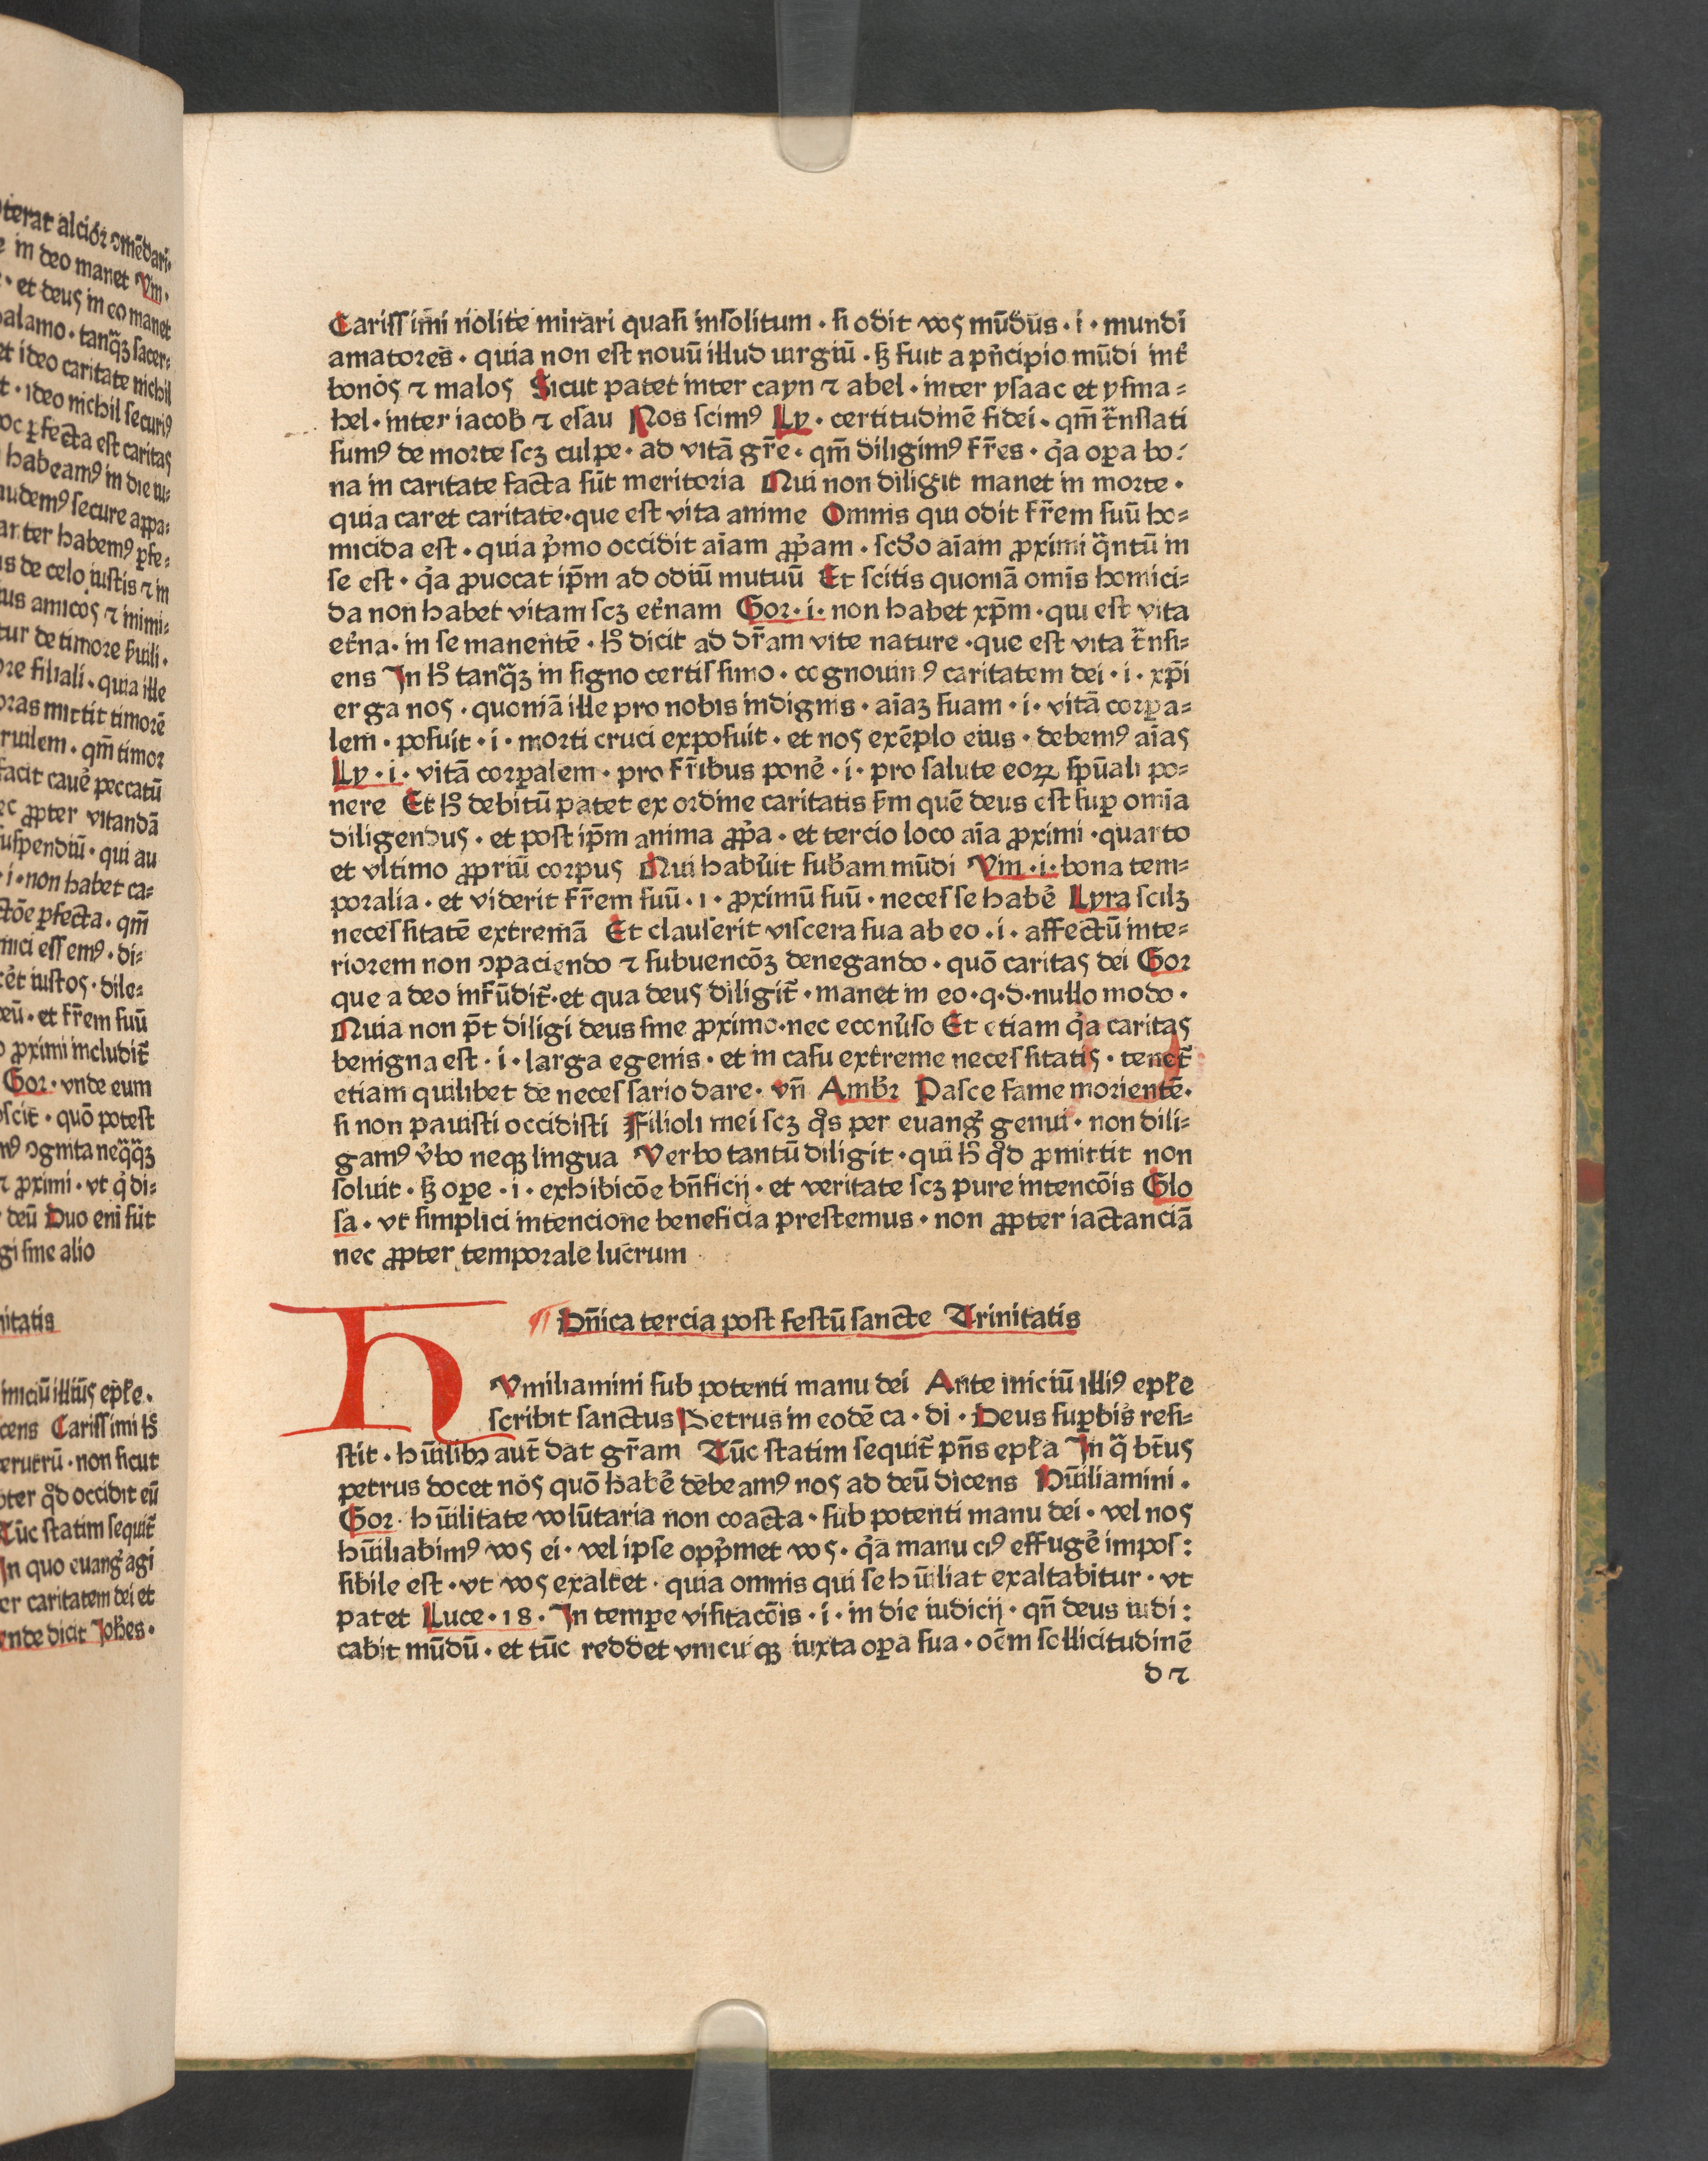 terat alciõz ꝯmẽdari·
in deo manet Vm·
· et deus in eo manet
palamo · tanq̃ꝫ sacer⸗
et ideo caritate nichil
t · ideo nichil securiꝰ
oc ꝑfecta est caritas
habeamꝰ in die iu⸗
audemꝰ secure appa⸗
habemꝰ ꝑfe⸗
s de celo iustis ⁊ in
us amicos ⁊ inimi⸗
tur de timore s̃uili ·
ore filiali · quia ille
oras mittit timorẽ
ruilem · qm̃ timor
facit cauẽ peccatũ
ec ꝓpter vitandã
suspendiũ · qui au
· i · non habet ca⸗
ctõe ꝑfecta · qm̃
mici essemꝰ · di⸗
iustos · dile⸗
deũ · et fr̃em suũ
ꝓximi includit̃
Gor · vnde eum
oscit · quõ potest
ꝯgnita neq̃q̃ꝫ
⁊ ꝓximi · vt q̇ di⸗
deũ Duo eni sũt
gi sine alio
nitatis
iniciũ illius ep̃le ·
cens Carissimi hͦ
erutrũ · non sicut
pter qͦd occidit eũ
Tũc statim sequit̃
In quo euang̃ agi
er caritatem dei et
ende dicit Joh̃es ·
Carissimi nolite mirari quasi insolitum · si odit vos mũdus · i · mundi
amatores · quia non est nouũ illud iurgiũ · sꝫ fuit a p̃ncipio mũdi int̃
bonos ⁊ malos Sicut patet inter cayn ⁊ abel · inter ysaac et ysma⸗
hel · inter iacob ⁊ esau Nos scimꝰ Ly · certitudinẽ fidei · qm̃ t̃nslati
sumꝰ de morte scꝫ culpe · ad vitã gr̃e · qm̃ diligimꝰ fr̃es · q̇a oꝑa bo⸗
na in caritate facta sũt meritoria Qui non diligit manet in morte ·
quia caret caritate · que est vita anime Omnis qui odit fr̃em suũ ho⸗
micida est · quia p̃mo occidit aĩam ꝓp̃am · scd̃o aĩam ꝓximi q̃ntũ in
se est · q̇a ꝓuocat ip̃m ad odiũ mutuũ Et scitis quoniã omĩs homici⸗
da non habet vitam scꝫ et̃nam Gor · i · non habet xp̃m · qui est vita
et̃na · in se manentẽ · hͦ dicit ad dr̃am vite nature · que est vita t̃nsi⸗
ens In hͦ tanq̃ꝫ in signo certissimo · cognouimꝰ caritatem dei · i · xp̃i
erga nos · quoniã ille pro nobis indignis · aĩaꝫ suam · i · vitã corꝑa⸗
lem · posuit · i · morti cruci exposuit · et nos exẽplo eius · debemꝰ aĩas
Ly · i · vitã corꝑalem · pro fr̃ibus ponẽ · i · pro salute eoꝝ sp̃uali po⸗
nere Et hͦ debitũ patet ex ordine caritatis s̃m quẽ deus est suꝑ omĩa
diligendus · et post ip̃m anima ꝓp̃a · et tercio loco aĩa ꝓximi · quarto
et vltimo ꝓpriũ corpus Qui habũit sub̃am mũdi Vm · i · bona tem⸗
poralia · et viderit fr̃em suũ · i · ꝓximũ suũ · necesse habẽ Lyra scilꝫ
necessitatẽ extremã Et clauserit viscera sua ab eo · i · affectũ inte⸗
riorem non ꝯpaciendo ⁊ subuencõꝫ denegando · quõ caritas dei Gor
que a deo inf̃ũdit̃ · et qua deus diligit̃ · manet in eo · q · d · nullo modo ·
Quia non p̃t diligi deus sine ꝓximo · nec econũso Et etiam q̇a caritas
benigna est · i · larga egenis · et in casu extreme necessitatis · tenet̃
etiam quilibet de necessario dare · vñ Amb̃r Pasce fame morientẽ ·
si non pauisti occidisti Filioli mei scꝫ q̊s per euang̃ genui · non dili⸗
gamꝰ ṽbo neqꝫ lingua Verbo tantũ diligit · qui hͦ qͦd ꝓmittit non
soluit · sꝫ oꝑe · i · exhibicõe bñficij · et veritate scꝫ pure intencõis Glo
sa · vt simplici intencione beneficia prestemus · non ꝓpter iactanciã
nec ꝓpter temporale lucrum
¶ Dñica tercia post festũ sancte Trinitatis
HVmiliamini sub potenti manu dei Ante iniciũ illiꝰ ep̃le
scribit sanctus Petrus in eodẽ ca · di · Deus suꝑbis resi⸗
stit · hũilibꝫ aut̃ dat gr̃am Tũc statim sequit̃ p̃ns ep̃la In q̃ bt̃us
petrus docet nos quõ habẽ debeamꝰ nos ad deũ dicens Hũiliamini ·
Gor · hũilitate volũtaria non coacta · sub potenti manu dei · vel nos
hũiliabimꝰ vos ei · vel ipse opp̃met vos · q̇a manu eiꝰ effugẽ impos⸗
sibile est · vt vos exaltet · quia omnis qui se hũiliat exaltabitur · vt
patet Luce · 18 · In tempe visitacõis · i · in die iudicij · qñ deus iudi⸗
cabit mũdũ · et tũc reddet vnicuiqꝫ iuxta oꝑa sua · oẽm sollicitudinẽ
d ⁊